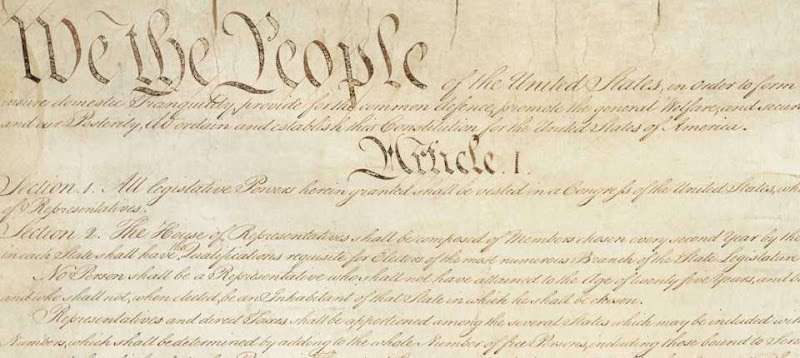 We the People of the United States, in Order to form
insure domestic Tranquility, provide for the common defence, promote the general Welfare, and secur
and our Posterity, do ordain and establish this Constitution for the United States of America.
Article. I.
Section. 1. All legislative Powers herein granted shall be vested in a Congress of the United States, wh
of Representatives.
Section. 2. The House of Representatives shall be composed of Members chosen every second Year by the
in each State shall have the Qualifications requisite for Electors of the most numerous Branch of the State Legislature
No Person shall be a Representative who shall not have attained to the Age of twenty five Years, and b
and who shall not, when elected, be an Inhabitant of that State in which he shall be chosen.
Representatives and direct Taxes shall be apportioned among the several States which may be included with
Numbers, which shall be determined by adding to the whole Number of free Persons, including those bound to Serv